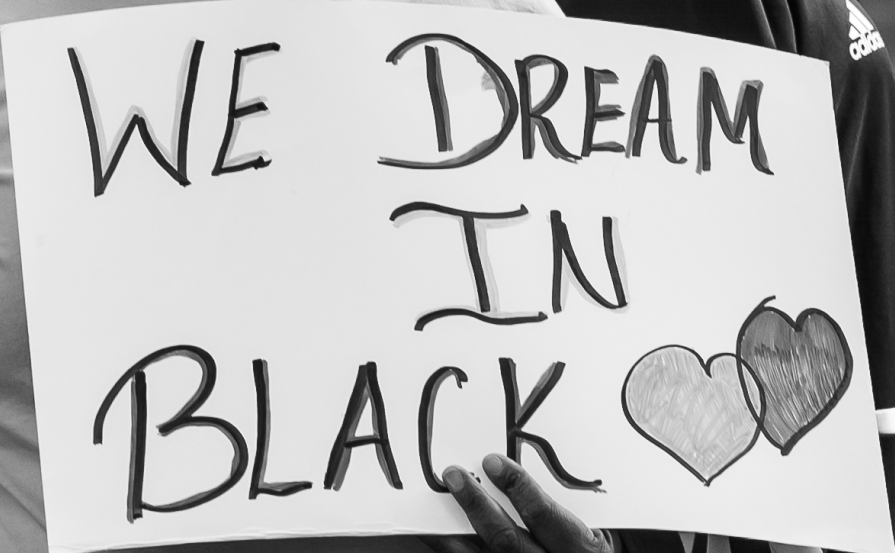 WE DREAM
IN
BLACK
adidas